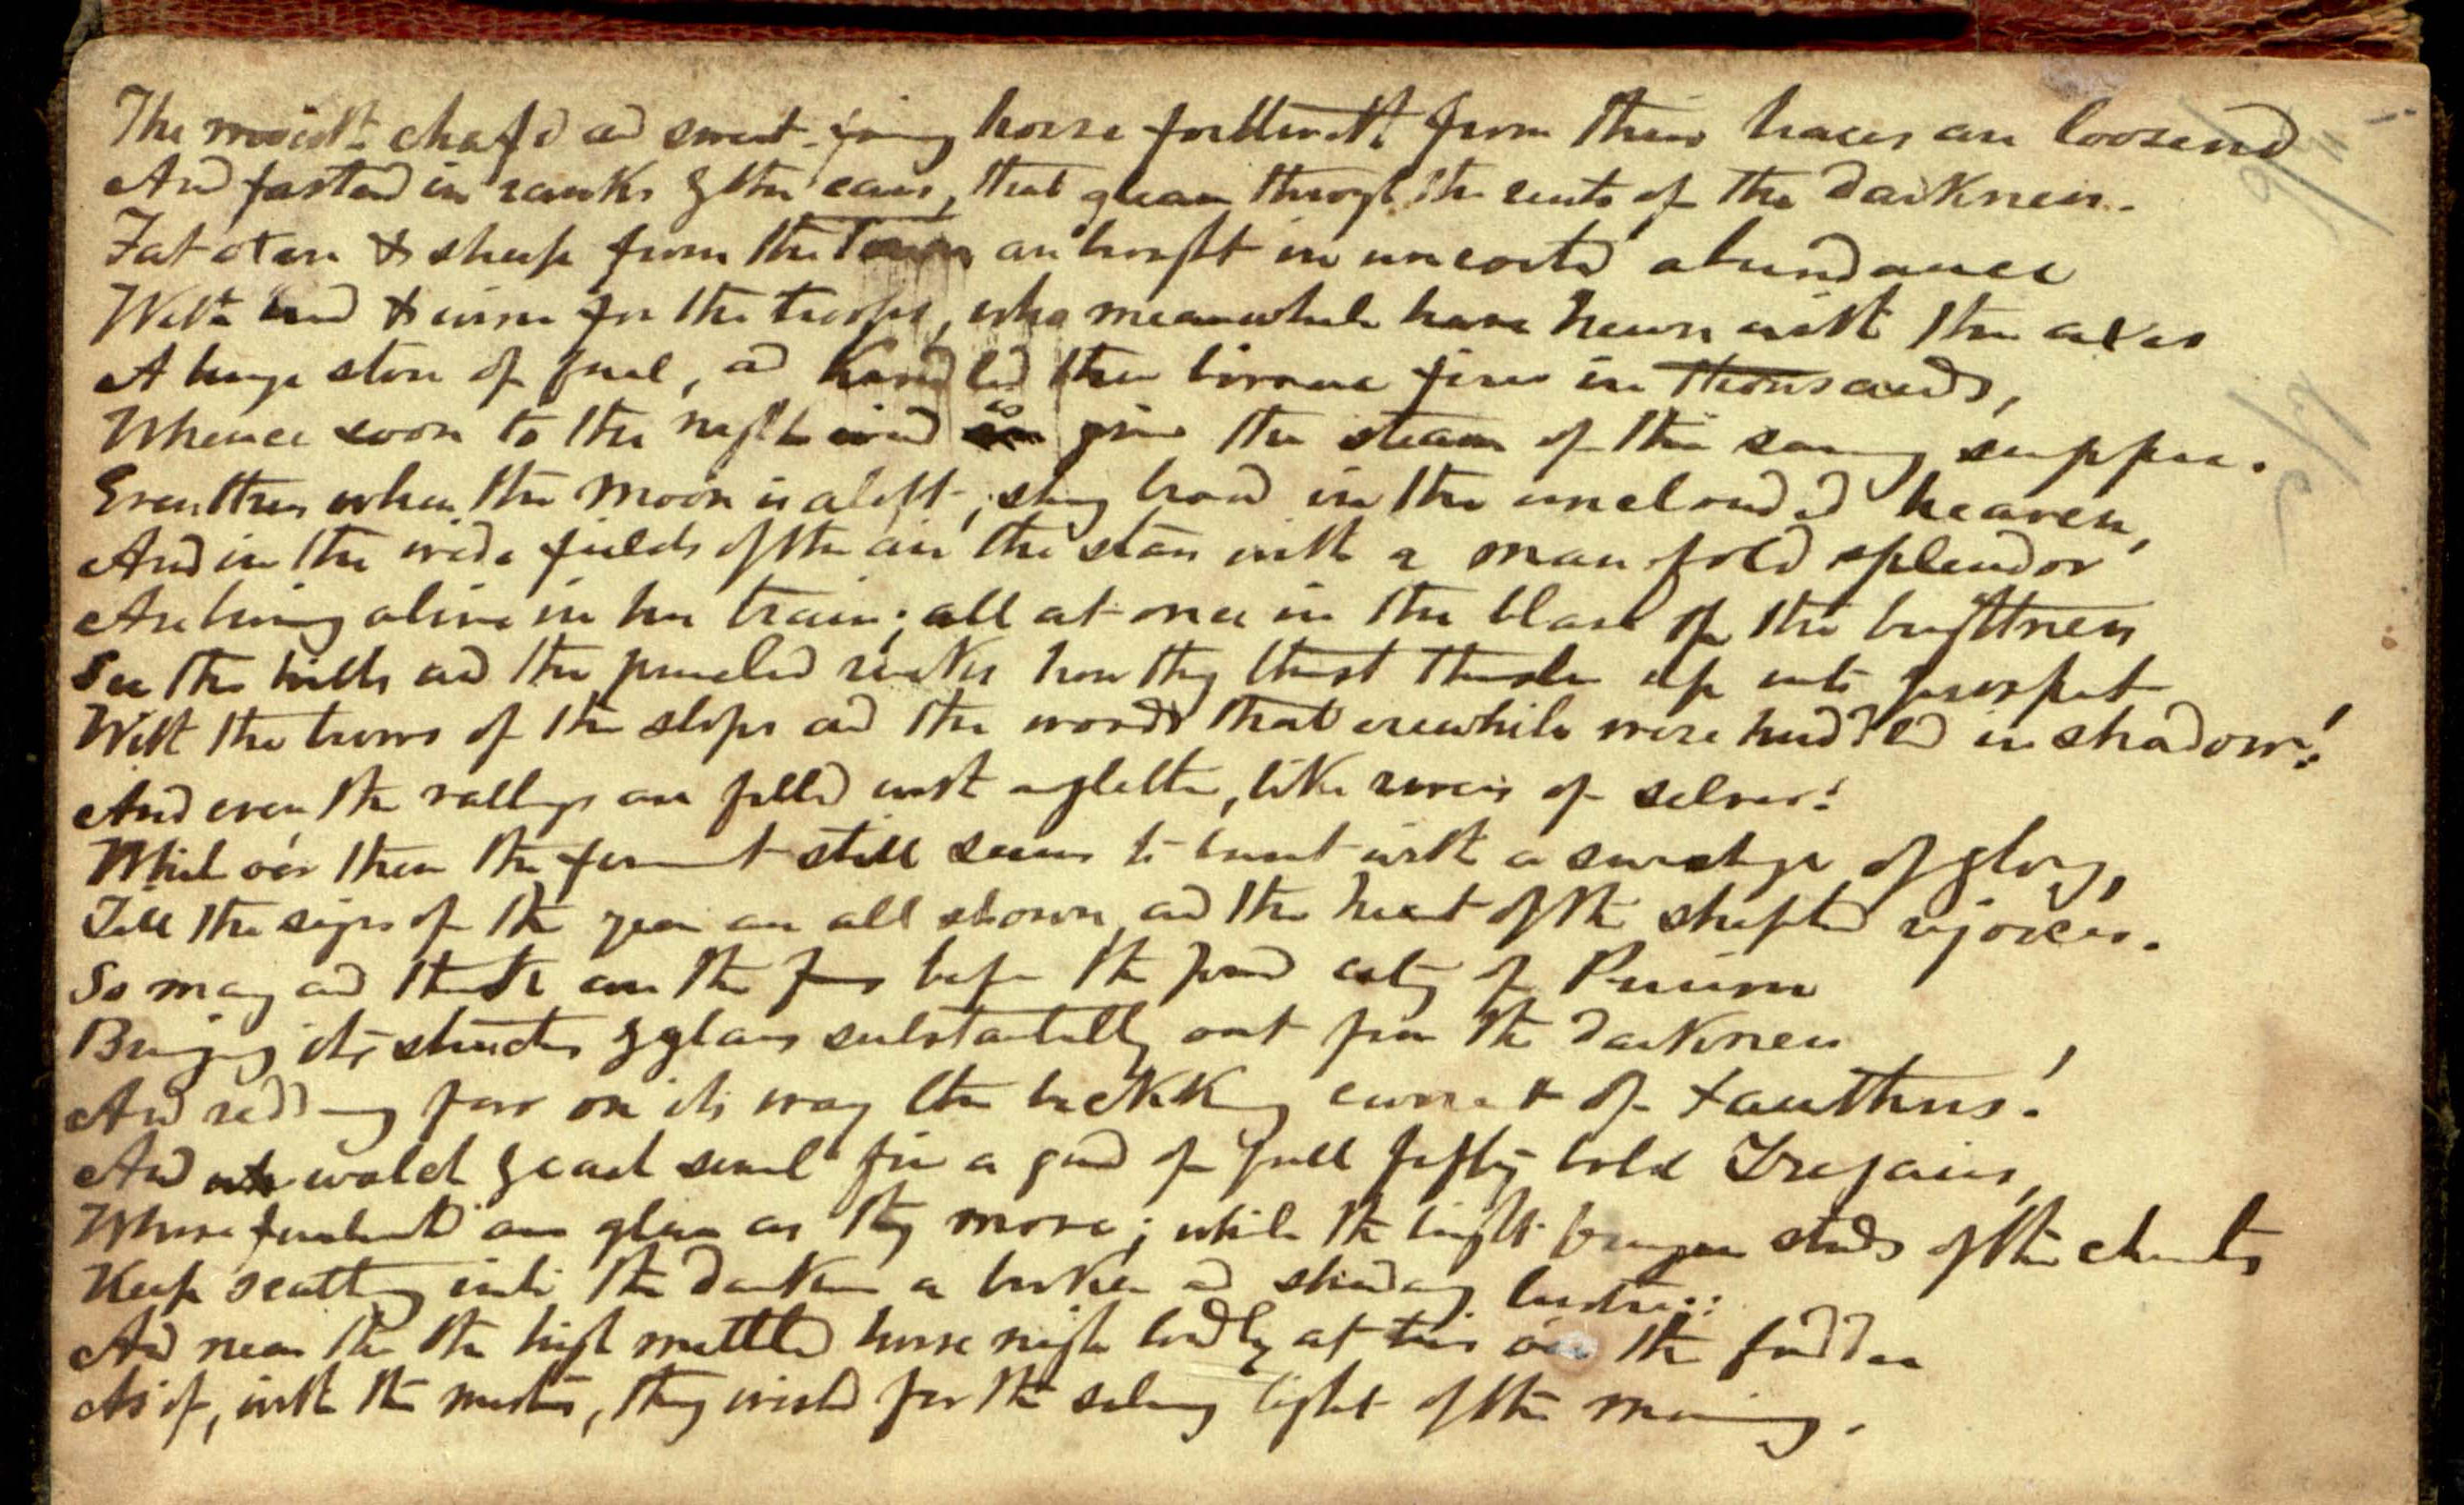 The moist chaf'd and sweat-foaming horse forthwith from their traces are loosend
And fastend in ranks by the cars, that gleam through the rents of the darkness.
Fat oxen & sheep from the Town are brought in uncosted abundance
With bread & wine for the troops, who meanwhile have hewn with the axes
A huge store of fuel, and kindled their bivouac fires in thousands,
Whence soon to the night wind as given the steam of the savoury supper.
Even then when the moon is aloft, shining broad in the unclouded heaven,
And in the wide fields of the air the stars with a manifold splendor
Are living alive in her train; all at once in the blaze of the brightness
See the hills and the pinnacled rocks how they thrust themselves up into prospect
With the towers of the slopes and the woods that erewhile were huddled in shadow!
And even the valleys are filled with a glitter, like rivers of silver!
While oër them the firmament still seems to burst with a surcharge of glory,
Till the signs of the year are all shown, and the heart of the shepherd rejoices.
So many and thick are the fires before the proud city of Priam
Bringing its structures by glares substantially out from the darkness
And redding far on its way the trickling current of Xanthus!
And watch by each several fire a guard of full fifty bold Trojans,
Whose furbished arms gleam as they move; while the bright bronzen studs of the chariots
Keep scattering into the darkness a broken and shadowy lustre:
And near them the high mettled horse neigh loudly at times oër the fodder
As if, with the masters, they wished for the saving light of the morning.